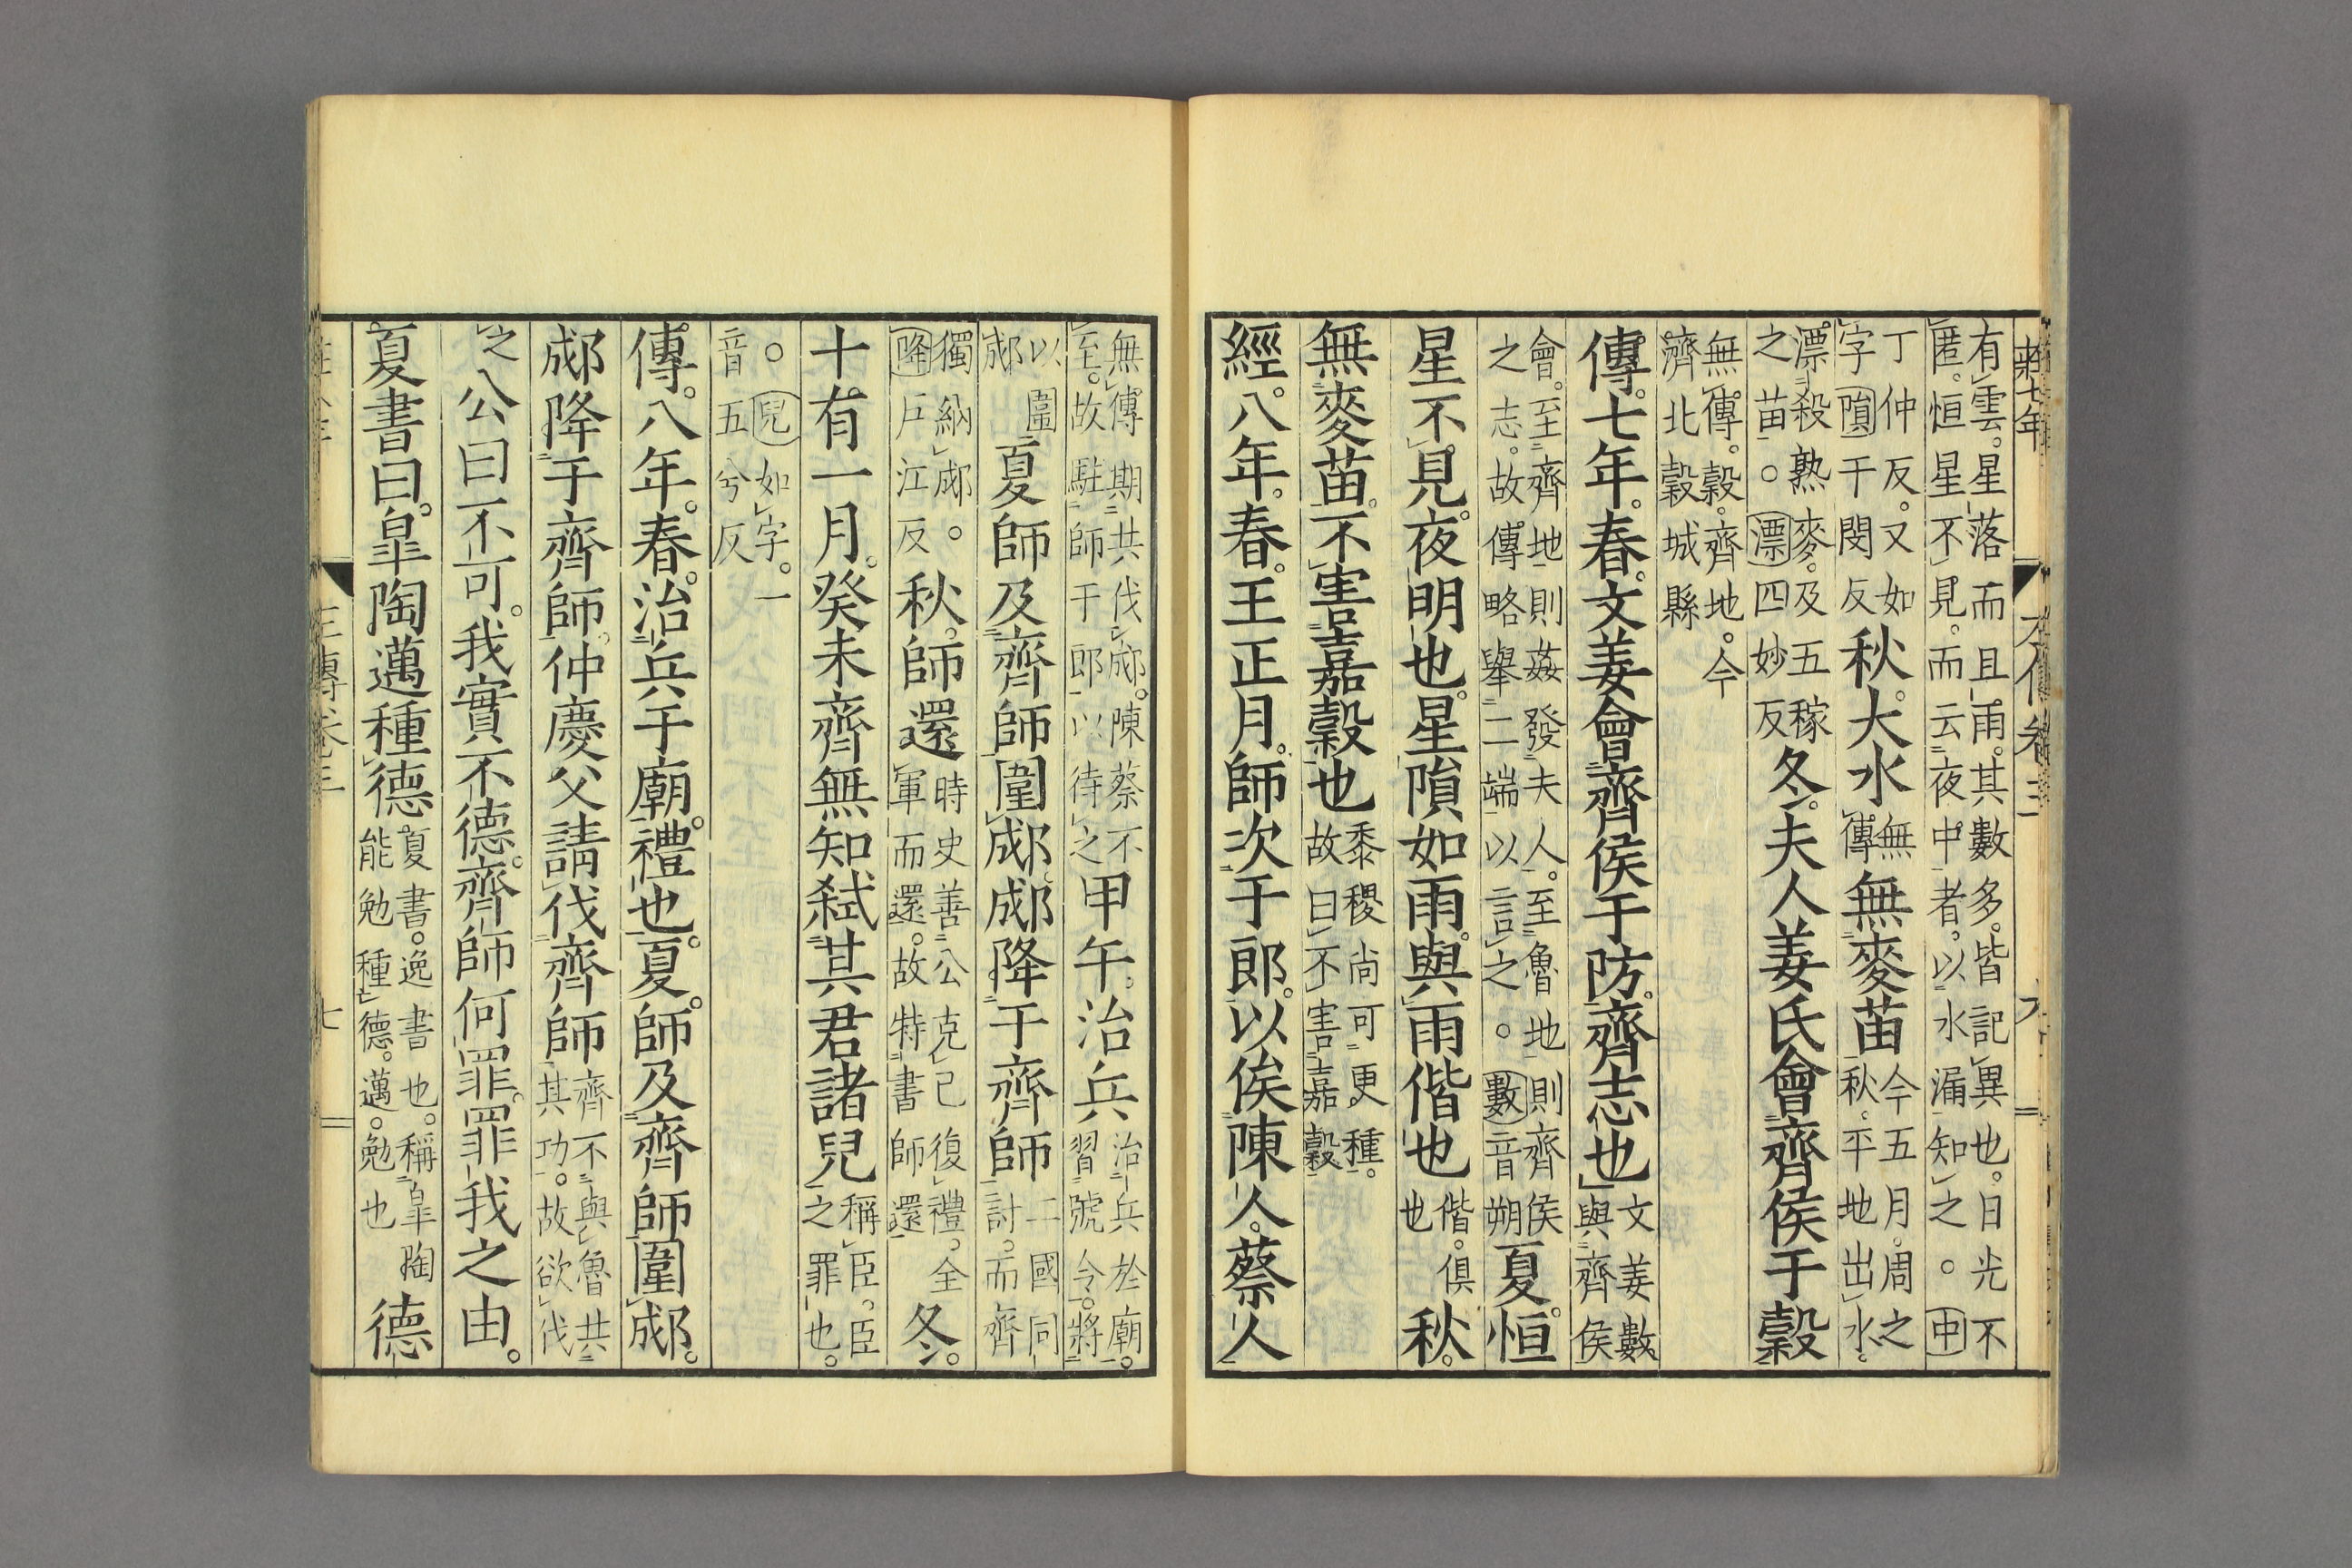 莊七年
有雲。星落而且雨。其數多。皆記異也。日光不
匿。恒星不見。而云夜中者。以水漏知之。○中
丁仲反。又如
字隕于閔反
秋。大水。
無
傳。
無麥苗
今五月。周之
秋。平地出水。
漂殺熟麥。及五稼
之苗。○漂四妙反
冬。夫人姜氏會齊侯于穀
無傳。穀。齊地。今
濟北穀城縣
傳。七年。春。文姜會齊侯于防。齊志也
文姜數
與齊侯
會。至齊地則姦發夫人。至魯地則齊侯
之志。故傳略舉二端以言之。○數音朔
夏。恒
星不見。夜明也。星隕如雨。與雨偕也
偕。俱
也
秋。
無麥苗。不害嘉穀也
黍稷尚可更種。
故曰不害嘉穀
經。八年。春。王正月。師次于郎。以俟陳人。蔡人
無傳期共伐郕。陳蔡不
至。故駐師于郎以待之
甲午。治兵
治兵於廟。
習號令。將
以圍
郕
夏師及齊師圍郕。郕降于齊師
二國同
討。而齊
獨納郕。○
降戶江反
秋。師還
時史善公克己復禮。全
軍而還。故特書師還
冬。
十有一月。癸未齊無知弒其君諸兒
稱臣。臣
之罪也。
○兒如字。一
音五兮反
傳。八年。春。治兵于廟。禮也。夏。師及齊師圍郕。
郕降于齊師。仲慶父請伐齊師
齊不與魯共
其功。故欲伐
之
公曰不可。我實不德。齊師何罪。罪我之由。
夏書曰。皐陶邁種德
夏書。逸書也。稱皐陶
能勉種德。邁。勉也
德